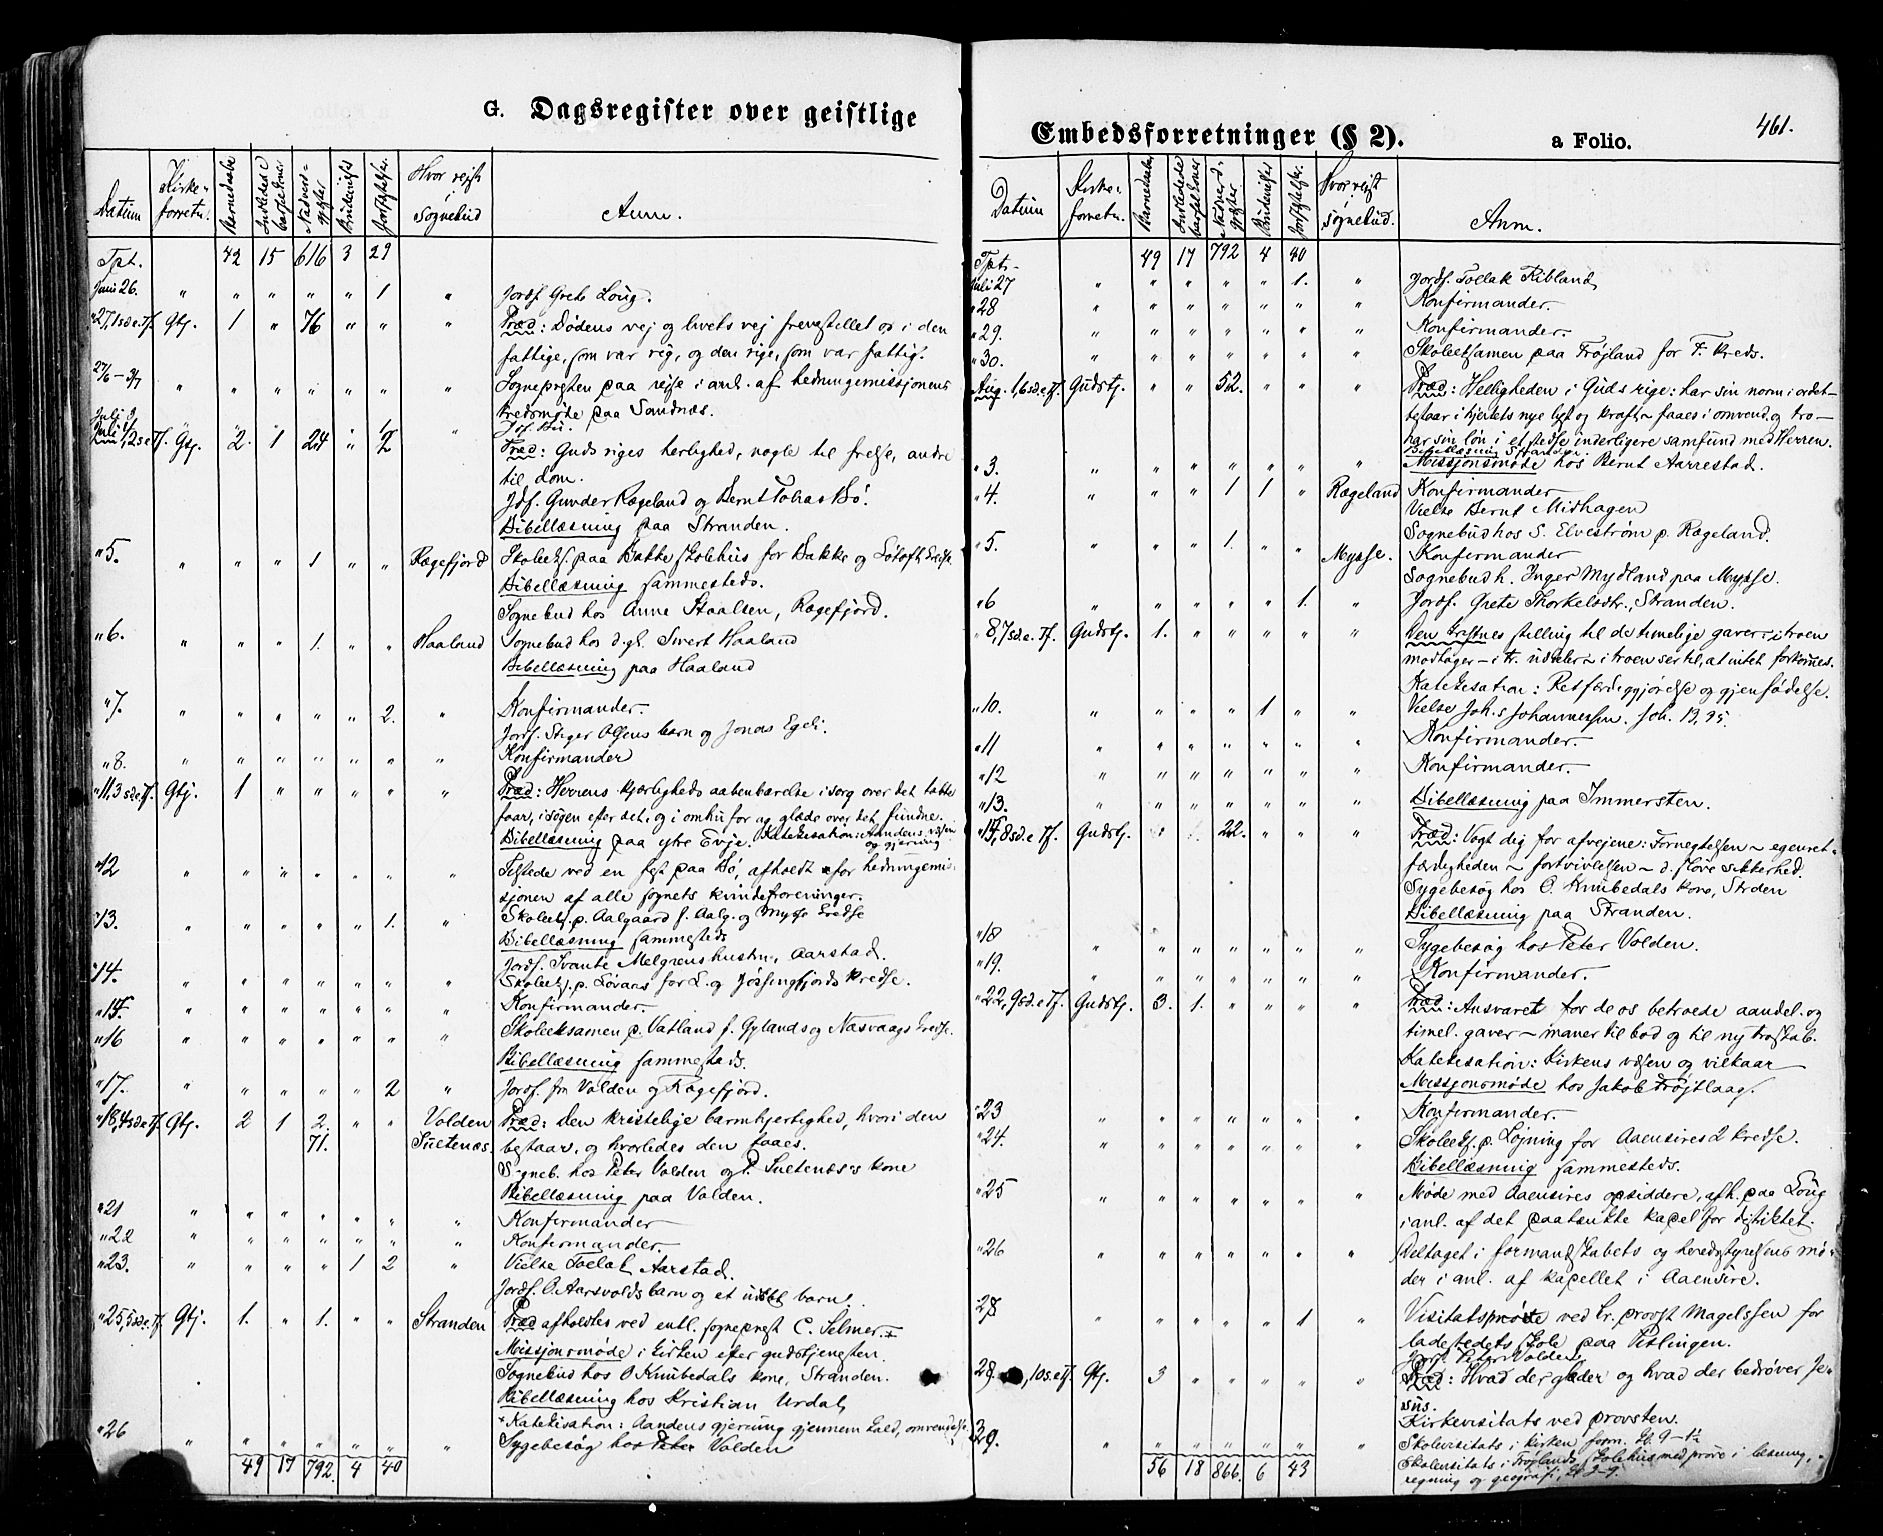 G. Dagsregister over geistlige
Datum Kirkeforretn. Barnedaab Indledede barselkoner Nadverdgjester Brudevielser Jordfæstelser Hvor rejst i Sognebud Anm.
Tpt. 42 15 616 3 29
Juni 26. " " " " " 1 " Jordf. Grete Loug.
" 27, 1 s. e. Tf. Gtj. 1 " 76 " " " Præd: Dødens vej og livets vej fremstillet os i den
fattige, som var rig, og den rige, som var fattig.
27/6 – 3/7 " " " " " " " Sognepresten paa rejse i anl. af hedningemissjonens
kredsmøte paa Sandnæs.
Juli 4, 2 s. e. Tf. Gtj. 2. 1 24 " 2 " Præd: Guds riges herlighed, nogle til frelse, andre
til dom.
Jdf. Gunder Rægeland og Bernt Tobias Bø.
Bibellæsning paa Stranden.
" 5. " " " 1 " " Rægefjord Skoleeks. paa Bakke skolehus for Bakke og
Bibellæsning sammesteds.
Sognebud hos Anne Staalsen, Rægefjord.
" 6. " " " 1. " " Haaland Sognebud hos d. gl. Sivert Haaland
Bibellæsning paa Haaland
" 7. " " " " " 2. " Konfirmander.
Jordf. Olsens barn og Jonas Egeli.
" 8. " " " " " " " Konfirmander
" 11, 3 s. e. Tf. Gtj. 1 " " " " " Præd: Herrens kjærligheds aabenbarelse i sorg over det tabte
faar, i søgen efter det, og i omhu for og glæde over det fundne.
Bibellæsning paa ytre Evje. Katekisation: Aandens væsen
og gjerning
" 12 " " " " " " " Tilstede ved en fest paa Bø, afholdt for hedningemis-
sjonen af alle sognets kvindeforeninger.
" 13. " " " " " 1. " Skoleeks. p. Aalgaard f. Aalg. og Myssе kredse
Bibellæsning sammesteds
Jordf. Svante Melgrens hustru, Aarstad.
" 14. " " " " " " " Skoleeks. p. Løvaas for L. og Jøssingfjords kredse.
" 15 " " " " " " " Konfirmander.
" 16 " " " " " " " Skoleeksamen p. Vatland f. Gylands og Næsvaags kredse.
Bibellæsning sammesteds.
" 17. " " " " " 2 " Jordf. fra Valden og Rægefjord.
" 18, 4 s. e. Tf. Gtj. 2 1 2. " " Valden Præd: Den kristelige barmhjertighed, hvori den
71. Suetenæs. bestaar, og hvorledes den faaes.
Sogneb. hos Peter Valden og P. Suetenæs's kone
Bibellæsning paa Valden.
" 21 " " " " " " " Konfirmander
" 22 " " " " " " " Konfirmander.
" 23. " " " " 1 2 " Vielse Tollak Aarstad.
Jordf. O. Aarsvolds barn og et udøbt barn.
" 25, 5 s. e. Tf. Gtj. 1. " 1. " " Stranden Præd afholdtes ved entl. sogneprest C. Selmer. +
Missjonsmøde i kirken efter gudstjenesten.
Sognebud hos O Knubedals kone, Stranden.
Bibellæsning hos Kristian Urdal,
+ Katekisation: Aandens gjerning gjennem kald, omvendelse.
" 26 " " " " " " " Sygebesøg hos Peter Valden
49 17 792. 4 40
Embedsforretninger (§ 2). a Folio. 461.
Datum Kirkeforretn. Barnedaab Indledede barselkoner Nadverdgjester Brudevielser Jordfæstelser. Hvor rejst i sognebud. Anm.
Tpt. 49 17 792 4 40
Juli 27 " " " " " 1. " Jordf. Tollak Kibland
" 28 " " " " " " " Konfirmander.
" 29. " " " " " " " Konfirmander.
" 30. " " " " " " " Skoleeksamen paa Frøjland for F. kreds.
Aug. 1, 6 s. e. Tf. Gudstj. " " 52. " " " Præd: Helligheden i Guds rige: har sin norm i ordet–
bestaar i hjertets nye lyst og kraft – faaes i omvend. og tro –
har sin løn i et stedse inderligere samfund med Herren.
Bibellæsning Stranden.
" 3. " " " " " " " Missjonsmøde hos Bernt Aarrestad.
" 4. " " " 1 1 " Rægeland Konfirmander
Vielse Bernt Midhagen
Sognebud hos S. Elvestrøm p. Rægeland.
" 5. " " " 1. " " Myssе. Konfirmander
Sognebud h. Inger Mydland paa Myssе.
" 6 " " " " " 1. " Jordf. Grete Thorkelsdtr., Stranden.
" 8, 7 s. e. Tf. Gudstj. 1. " " " " " Den kristnes stilling til de timelige gaver – i troen
modtager – i tr. uddeler – i troen ser til, at intet forkommes.
Katekisation: Retfærdiggjørelse og gjenfødelse.
" 10. " " " " 1 " " Vielse Joh. s. Johannessen.
" 11 " " " " " " " Konfirmander.
" 12 " " " " " " " Konfirmander.
" 13. " " " " " " " Bibellæsning paa Immersten.
" 15, 8 s. e. Tf. Gudstj. 22. " " " Præd: Vogt dig for afvejene: Fornegtelsen – egenret-
færdigheden – fortvivlelsen – d. sløve sikkerhed.
Sygebesøg hos O. Knubedals kone, Strden
Bibellæsning paa Stranden.
" 18 " " " " " " " Sygebesøg hos Peter Valden.
" 19. " " " " " " " Konfirmander.
" 22, 9 s. e. Tf. Gudstj. 3. 1. " " " " Præd: Ansvaret for de os betroede aandel. og
timel. gaver – maner til bod og til ny troskab.
Katekisation: Kirkens væsen og vilkaar
Missjonsmøde hos Jakob Frøjtlaag.
" 23 " " " " " " " Konfirmander.
" 24. " " " " " " " Skoleeks. p. Løjning for Aaensires 2 kredse.
Bibellæsning sammesteds.
" 25 " " " " " " " Møde med Aaensires opsiddere, afh. paa Loug
i anl. af det paatænkte kapel for distriktet.
" 26 " " " " " " " Deltaget i formandskabets og heredsstyrelsens mø-
der i anl. af kapellet i Aaensire.
28 " " " " " 1 " Visitatsprøve ved hr. provst Magelssen for
ladestedets skole paa Pitlingen.
Jordf. Peter Valden.
29, 10 s. e. Tf. Gtj. 3 " " " " " Præd: Hvad der glæder og hvad der bedrøver Je-
sus.
Kirkevisitats ved provsten.
" " " " " " " Skolevisitats i kirken form. kl. 9 – 1½
Skolevisitats i Frøjlands skolehus med prøve i læsning,
regning og geografi, kl. 3–9.
56 18 866. 6 43